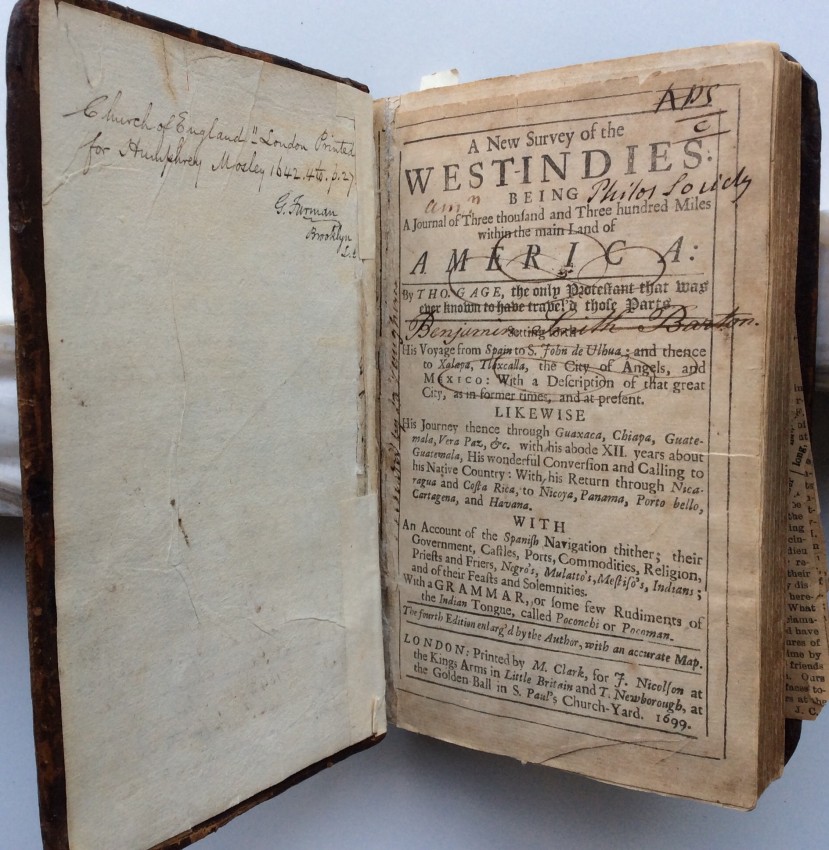 Church of England" London Printed
for Humphrey Mosley 1642. 4to. p. 27
G. Furman
Brooklyn
APS
C
A New Survey of the
WEST-INDIES:
BEING Philos Society
A Journal of Three thouſand and Three hundred Miles
within the main Land of
AMERICA:
By THO. GAGE, the only Proteſtant that was
ever known to have travel'd thoſe Parts
Benjamin Smith Barton.
Setting forth
His Voyage from Spain to S. John de Ulhua; and thence
to Xalapa, Tlaxcalla, the City of Angels, and
MEXICO: With a Deſcription of that great
City, as in former times, and at preſent.
LIKEWISE
His Journey thence through Guaxaca, Chiapa, Guate-
mala, Vera Paz, &c. with his abode XII. years about
Guatemala, His wonderful Converſion and Calling to
his Native Country: With his Return through Nica-
ragua and Coſta Rica, to Nicoya, Panama, Porto bello,
Cartagena, and Havana.
WITH
An Account of the Spaniſh Navigation thither; their
Government, Caſtles, Ports, Commodities, Religion,
Prieſts and Friers, Negro's, Mulatto's, Meſtiſo's, Indians;
and of their Feaſts and Solemnities.
With a GRAMMAR, or ſome few Rudiments of
the Indian Tongue, called Poconchi or Pocoman.
The fourth Edition enlarg'd by the Author, with an accurate Map.
LONDON: Printed by M. Clark, for J. Nicolſon at
the Kings Arms in Little Britain and T. Newborough, at
the Golden Ball in S. Paul's Church-Yard. 1699.
their
here-
What
have
ares of
ime by
friends
Ours
J. C.